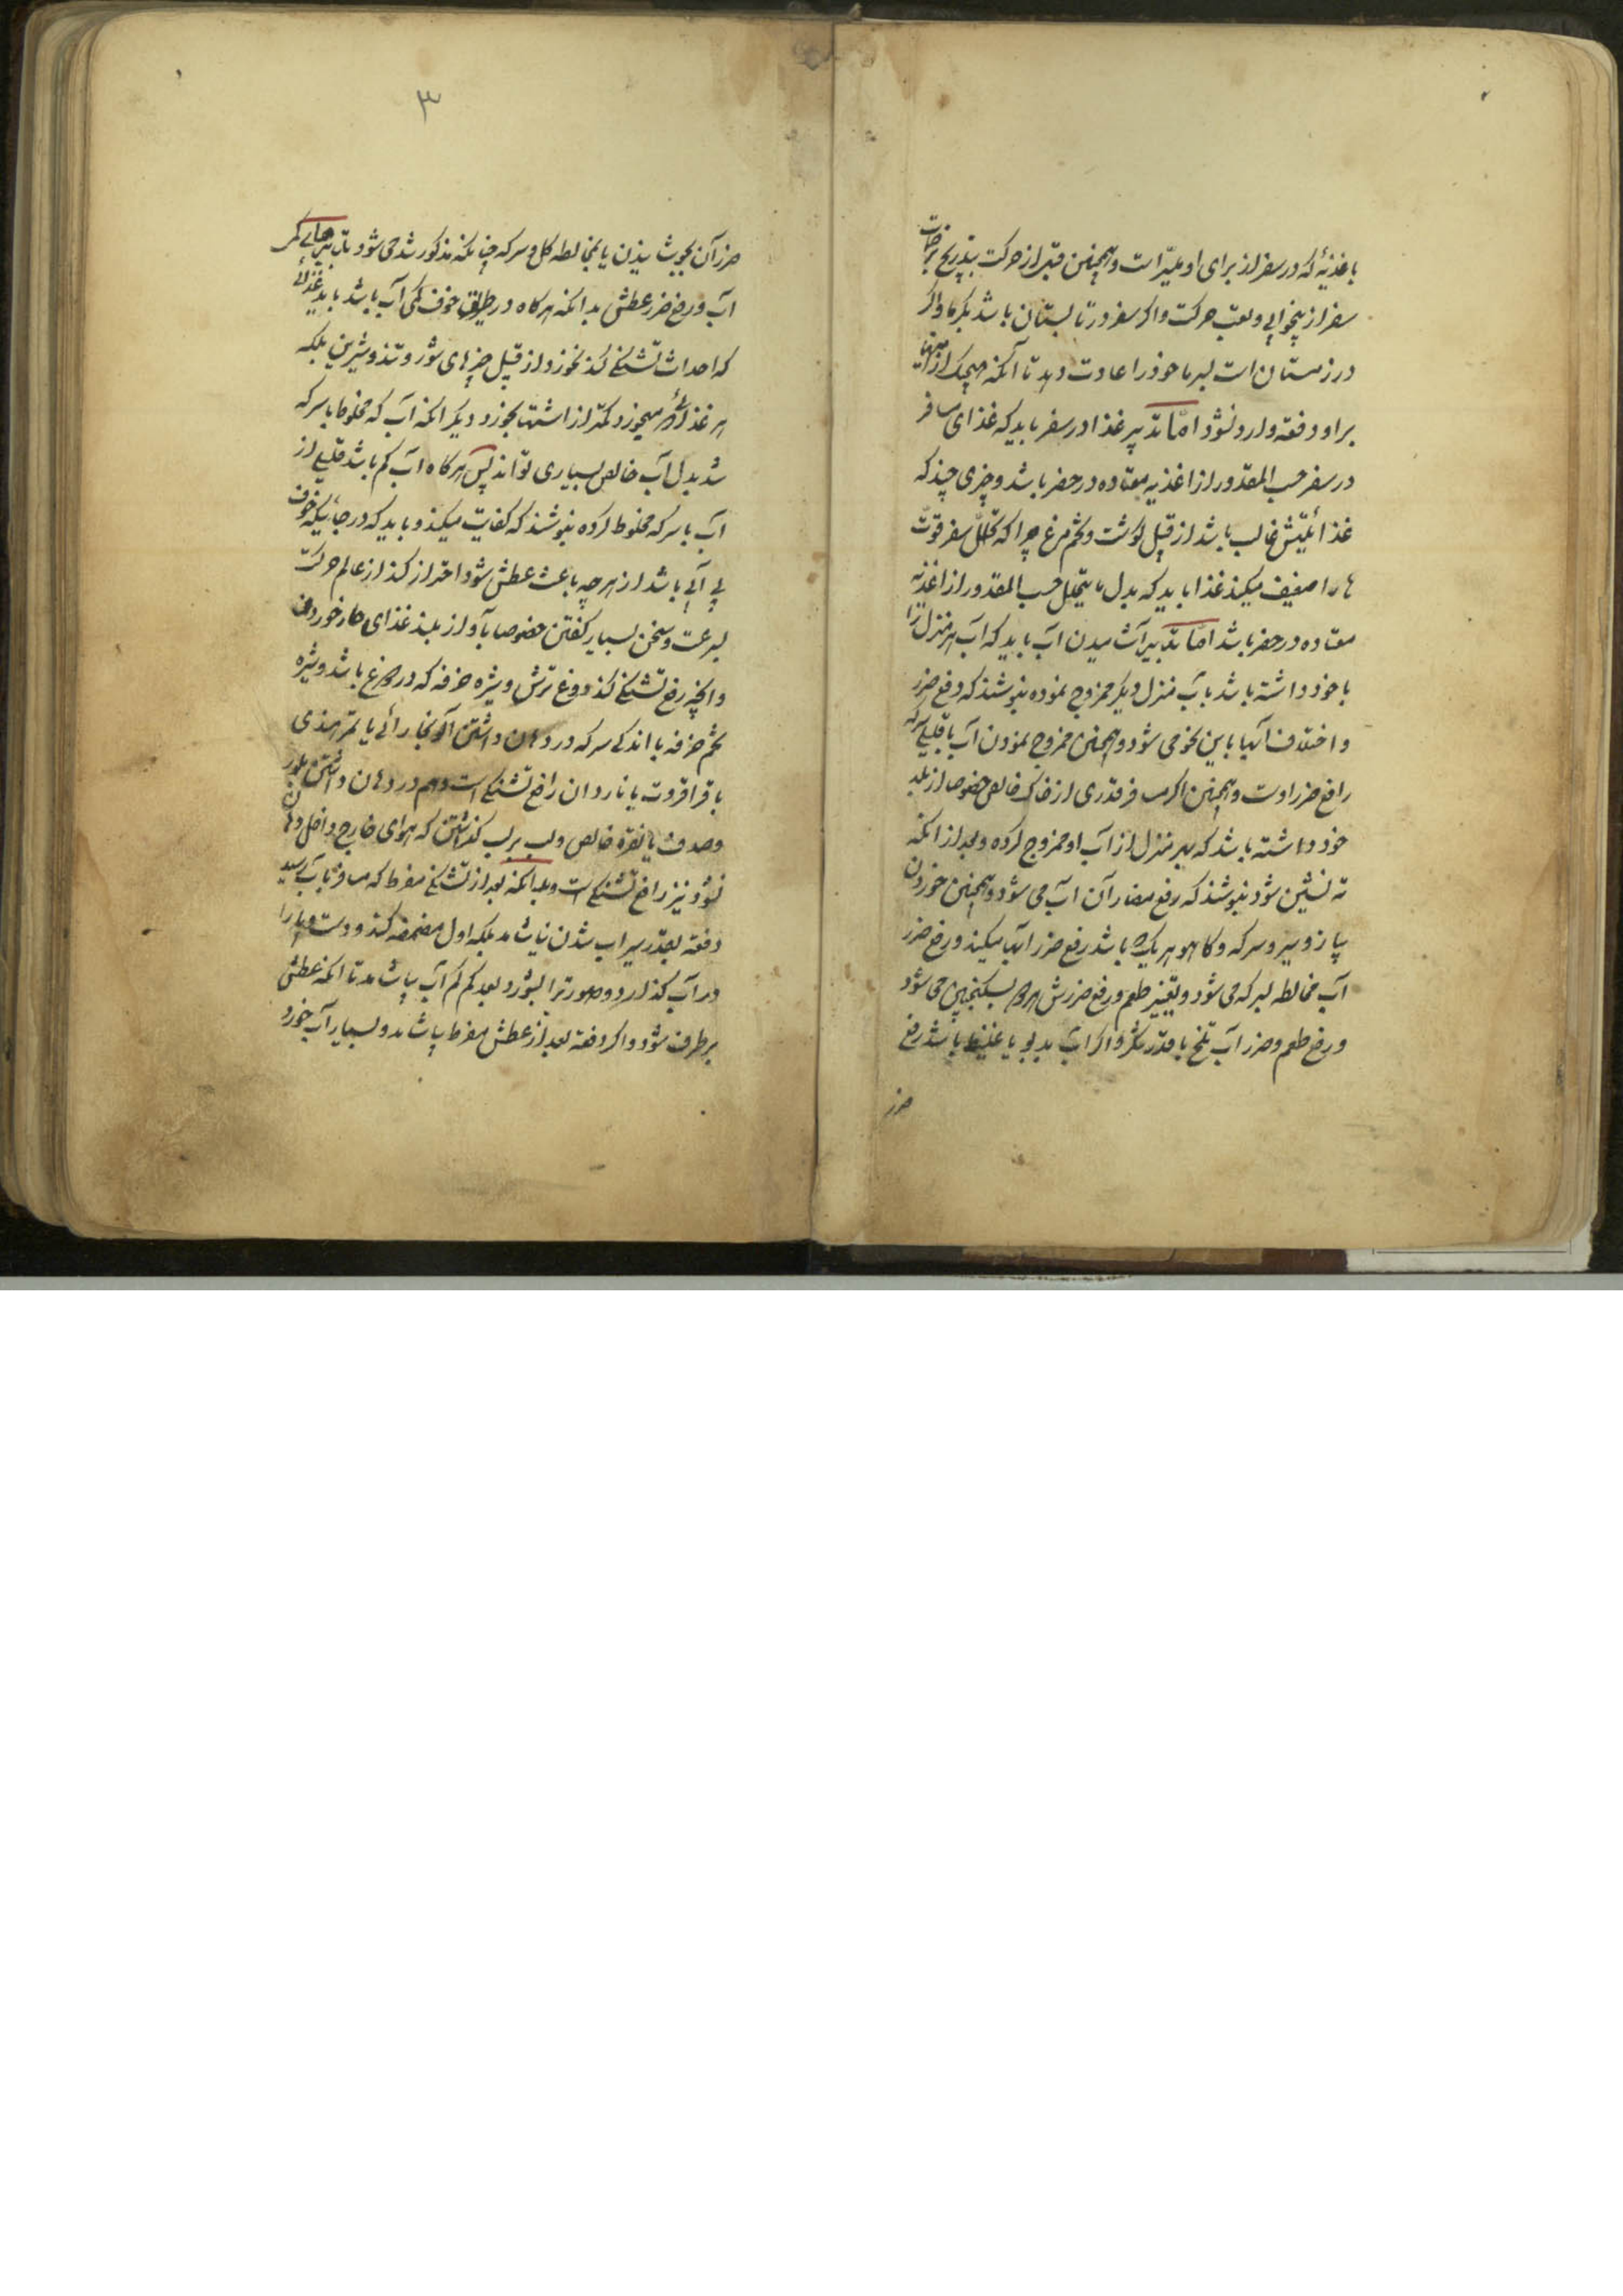 باغذیهٔ که در سفر از برای او میسّر است و همچنین قبل از حرکت بتدریج بر حرکات
سفر از بیخوابی و تعب حرکت و اگر سفر در تابستان باشد بگرما و اگر
در زمستان است بسرما خود را عادت دهد تا آنکه هیچیک از اینها
بر او دفعة وارد نشود امّا تدبیر غذا در سفر باید که غذای مسافر
در سفر حسب المقدور از اغذیه معتاده در حضر باشد و چیزی چند که
غذائیتش غالب باشد از قبیل گوشت و تخم مرغ چرا که تحلّل سفر قوّت
ها را ضعیف میکند غذا باید که بدل ما یتحلل حسب المقدور از اغذیه
معتاده در حضر باشد امّا تدبیر آشامیدن آب باید که آب هر منزل را
با خود داشته باشد با آب منزل دیگر ممزوج نموده بنوشند که دفع ضرر
و اختلاف آبها باین نحو می شود و همچنین ممزوج نمودن آب با قلیلی سرکه
رافع ضرر اوست و همچنین اگر مسافر قدری از خاک خالص خصوصا از بلد
خود داشته باشد که بهر منزل از آب او ممزوج کرده و بعد از آنکه
ته نشین شود بنوشند که رفع مضار آن آب می شود و همچنین خوردن
پیاز و سیر و سرکه و کاهو هر یک باشد رفع ضرر آبها میکند و رفع ضرر
آب مخالطه بسرکه می شود و تغییر طعم و رفع ضررش بسکنجبین می شود
و رفع طعم و ضرر آب تلخ با قدر شکر و اگر آب بدبو یا غلیظ باشد رفع
ضرر
۳
ضرر آن بجوشیدن یا بمخالطه گل و سرکه چنانکه مذکور شد می شود تدبیر جائی که
آب و رفع ضرر عطش بدانکه هرگاه در طریق خوف کمی آب باشد باید غذائی
که احداث تشنگی کند نخورد از قبیل چیزهای شور و تند و شیرین بلکه
هر غذائی که میخورد کمتر از اشتها بخورد و دیگر آنکه آب که مخلوط با سرکه
شد بدل آب خالص بسیاری تواند پس هرگاه آب کم باشد قلیلی از
آب با سرکه مخلوط کرده بنوشند که کفایت میکند و باید که در جائیکه خوف
بی آبی باشد از هر چه باعث عطش شود احتراز کند از عالم حرکت
بسرعت و سخن بسیار گفتن خصوصا بآواز بلند غذای حار خوردن
و آنچه رفع تشنگی کند دوغ ترش و شیره خرفه که در دوغ باشد و شیره
تخم خرفه با اندکی سرکه در دهان داشتن آلو بخارائی یا تمر هندی
یا قراقروت یا ناردان رافع تشنگی است و هم در دهان داشتن بلور
و صدف یا نقرهٔ خالص و لب بر لب گذاشتن که هوای خارج داخل دهان
نشود نیز رافع تشنگی است و بدانکه بعد از تشنگی مفرط که مسافر بآب رسید
دفعة بقدر سیراب شدن نیاشامد بلکه اول مضمضه کند و دست و پا را
در آب گذارد و صورت را بشورد بعد کم کم آب بیاشامد تا آنکه عطش
برطرف شود و اگر دفعة بعد از عطش مفرط بیاشامد و بسیار آب خورد